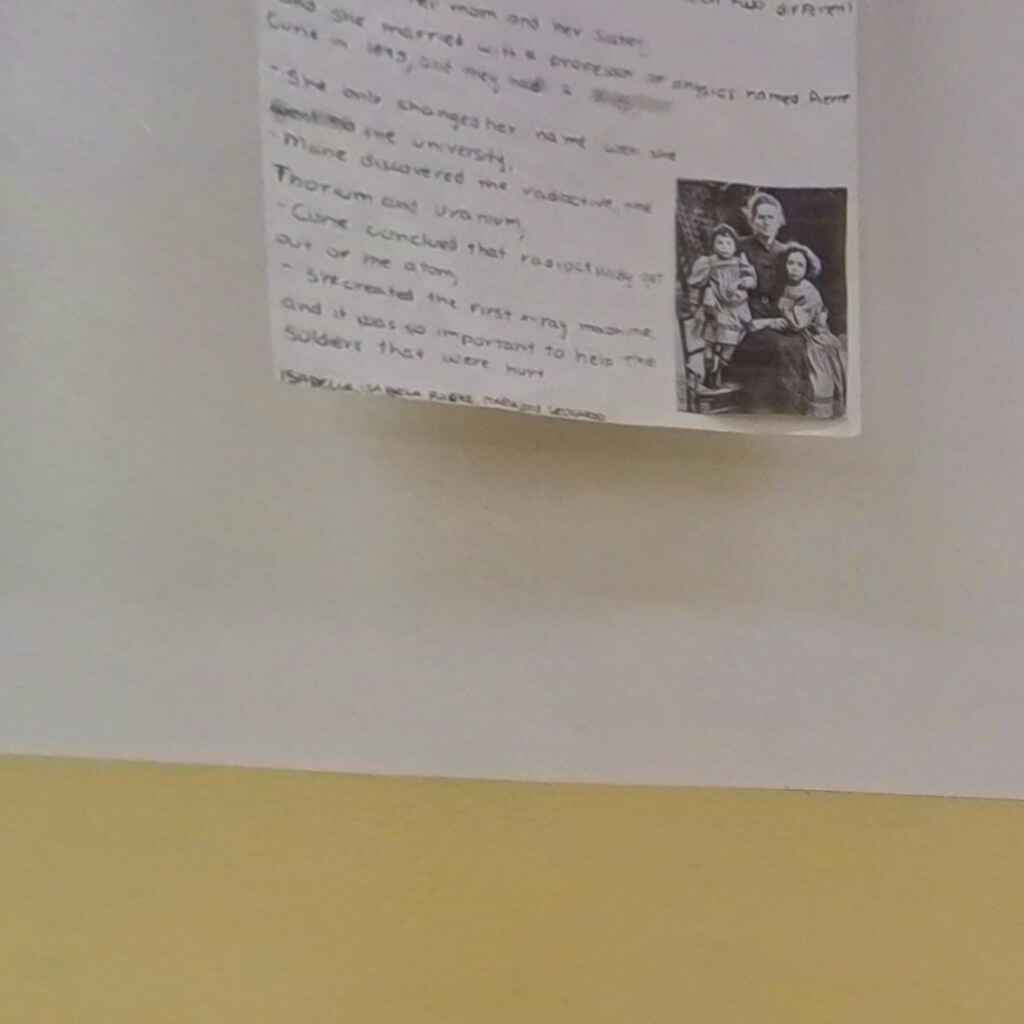 two different
her mom and her sister.
and she married with a professor of physics named Pierre
Curie in 1895, and they had a
- She only changed her name when she
the university.
- Marie discovered the radioactive, and
Thorium and Uranium,
- Curie conclued that radioactivity get
out of the atom,
- She created the first x-ray machine
and it was so important to help the
soldiers that were hurt
ISABELLA, ISABELA